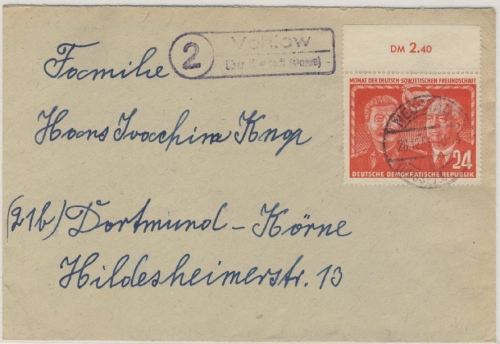 2
Vahlow
DM 2.40
MONAT DER DEUTSCH-SOWJETISCHEN FREUNDSCHAFT
24
DEUTSCHE DEMOKRATISCHE REPUBLIK
Familie
Hans Joachim Knop
(21b) Dortmund-Körne
Hildesheimerstr. 13